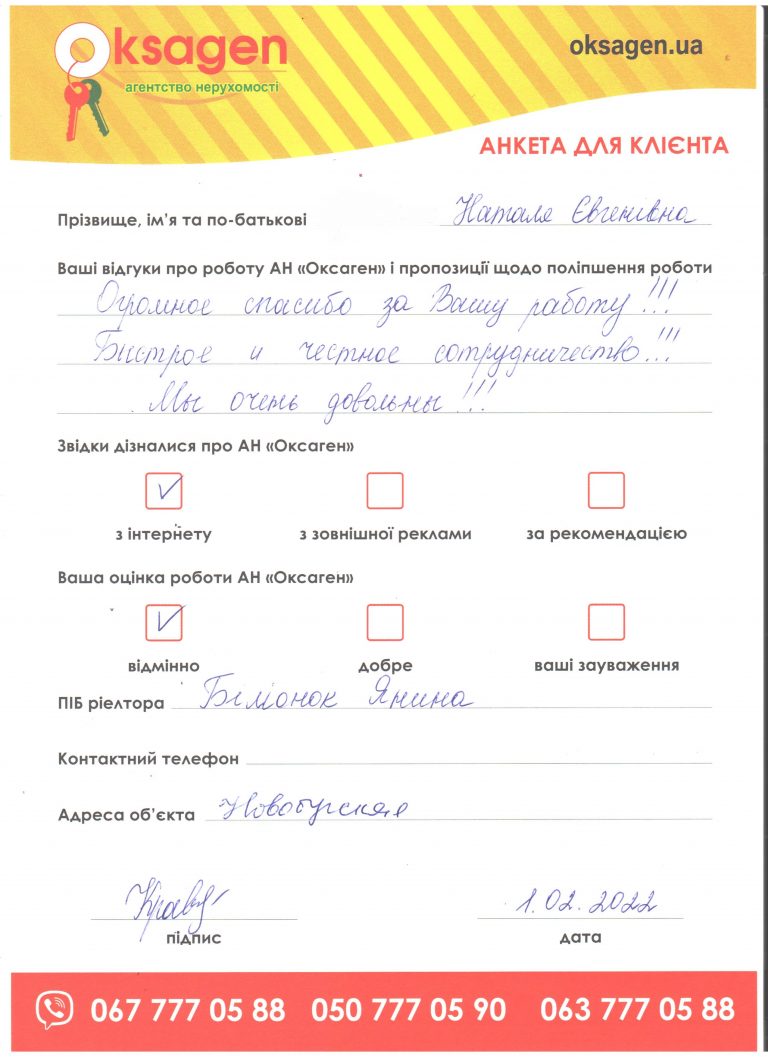 Oksagen
агентство нерухомості
oksagen.ua
АНКЕТА ДЛЯ КЛІЄНТА
Прізвище, ім'я та по-батькові Наталя Євгенівна
Ваші відгуки про роботу АН «Оксаген» і пропозиції щодо поліпшення роботи
Огромное спасибо за Вашу работу!!!
Быстрое и честное сотрудничество!!!
Мы очень довольны!!!
Звідки дізналися про АН «Оксаген»
✓
з інтернету з зовнішної реклами за рекомендацією
Ваша оцінка роботи АН «Оксаген»
✓
відмінно добре ваші зауваження
ПІБ ріелтора Янина
Контактний телефон
Адреса об'єкта
підпис 1.02.2022
дата
067 777 05 88 050 777 05 90 063 777 05 88